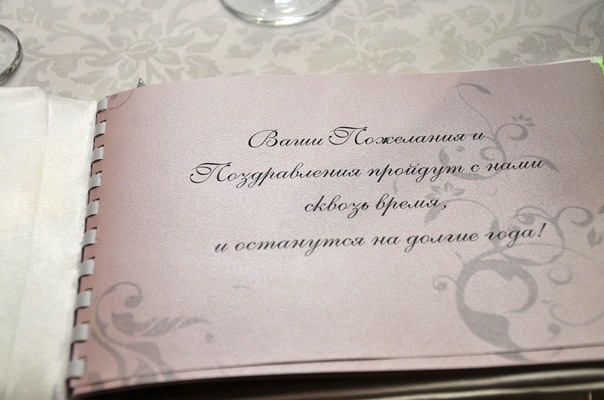 Ваши Пожелания и
Поздравления пройдут с нами
сквозь время,
и останутся на долгие года!